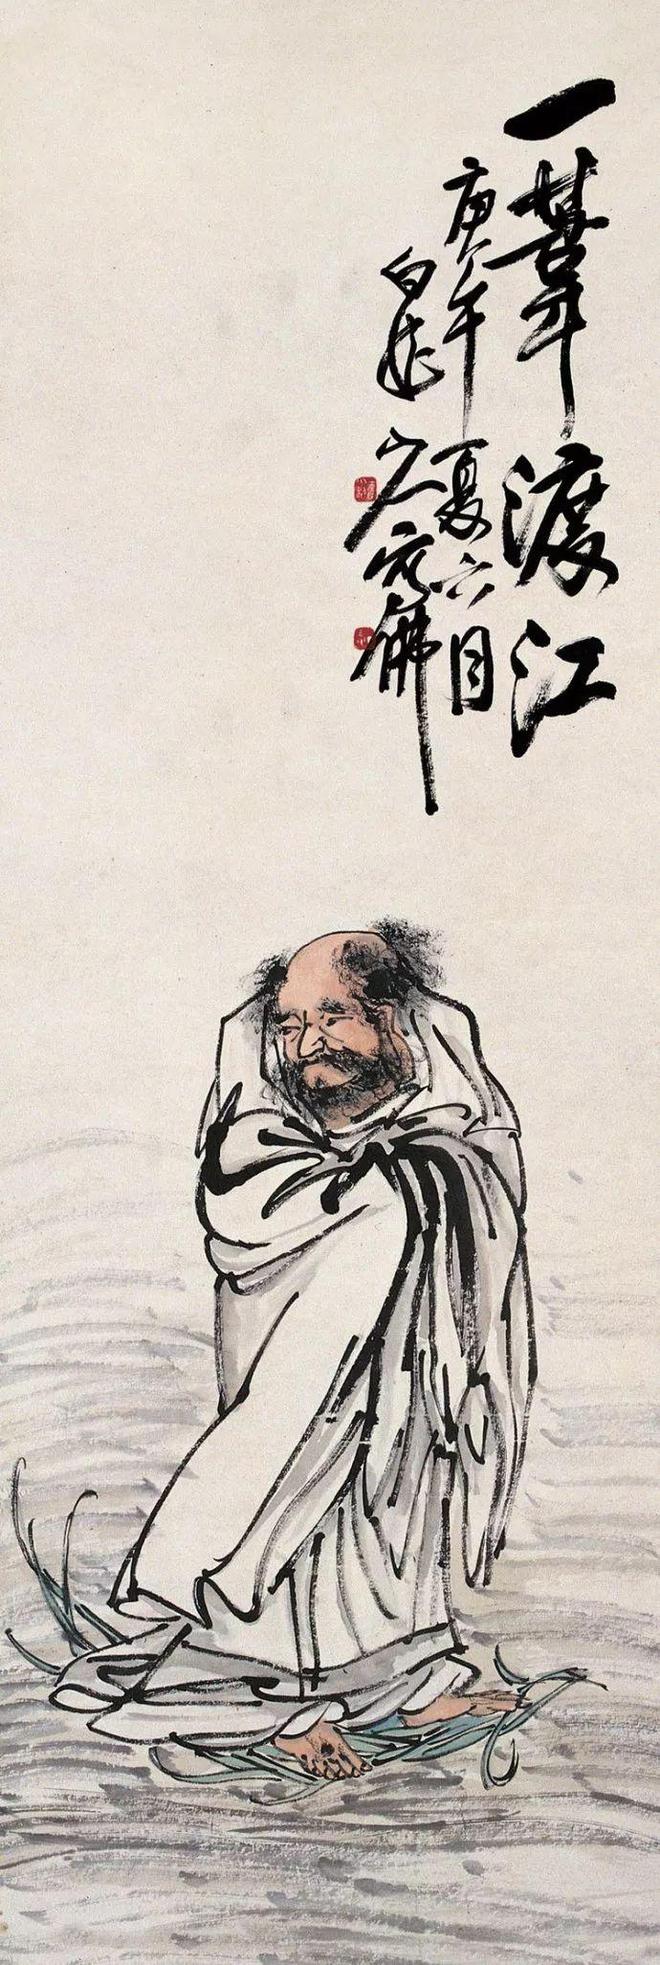 一葦渡江
庚午夏六月
白龍山人寫佛